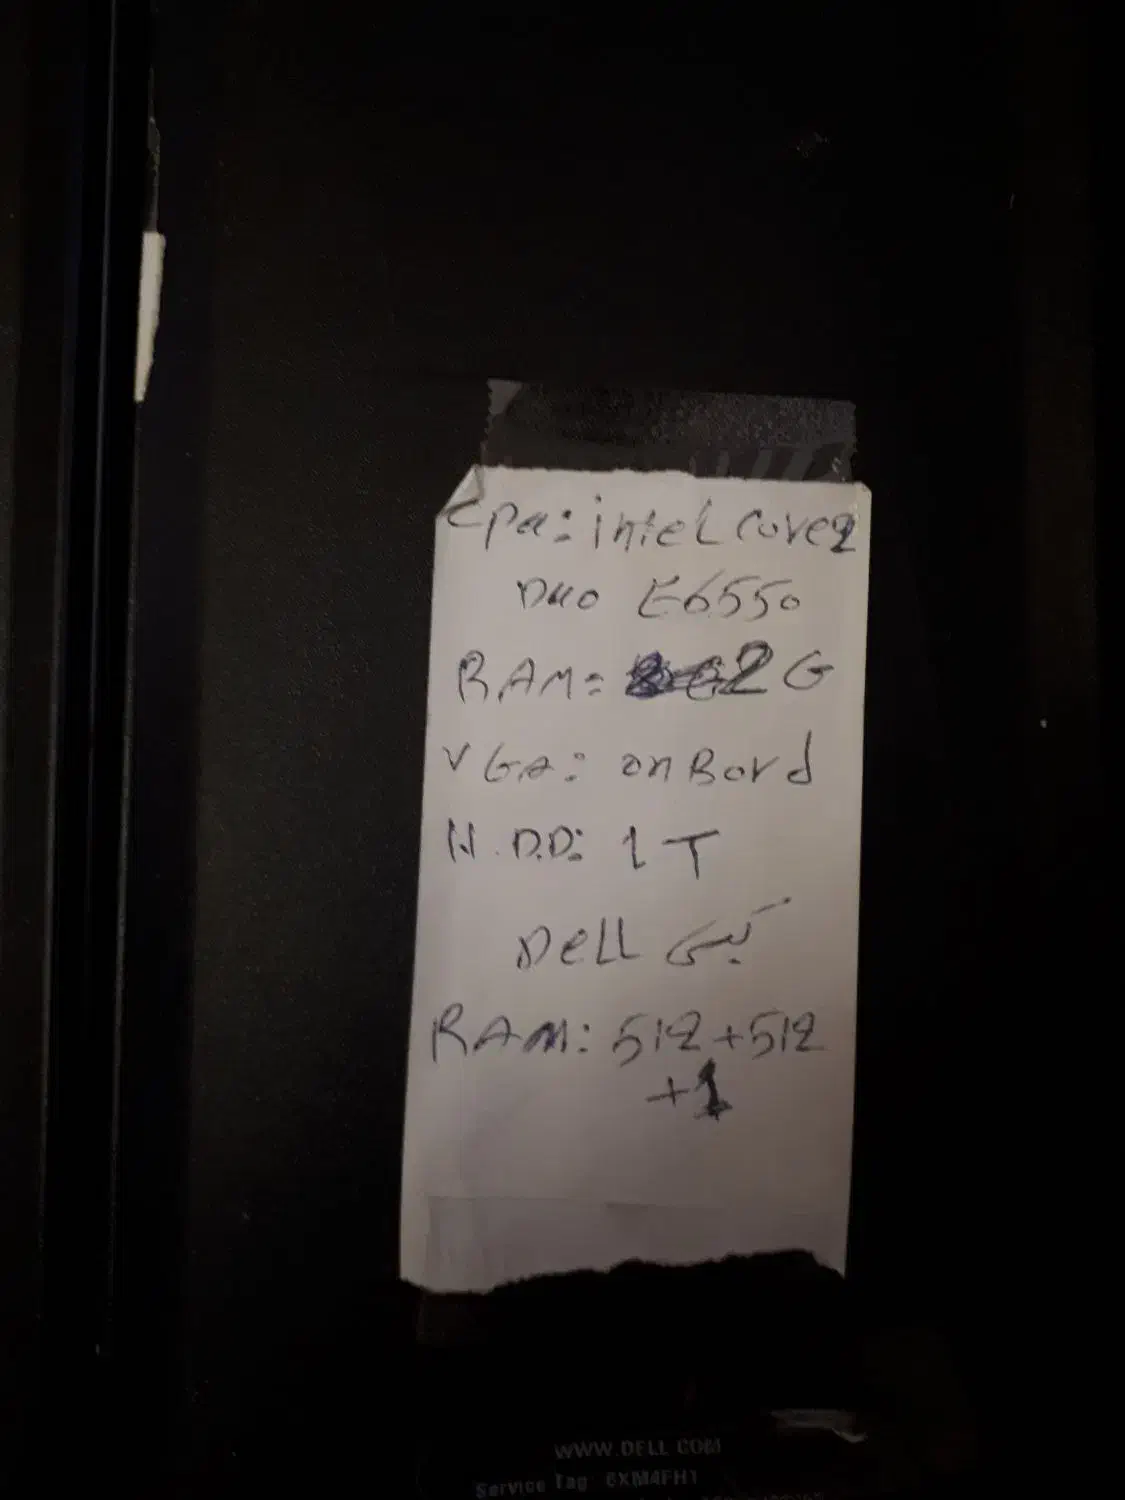 cpu: intel Core2
Duo E6550
RAM: 2 G
VGA: onBord
H.D.D: 1 T
Dell کیسی
RAM: 512+512
+1
WWW.DELL.COM
Service Tag 6XM4FH1